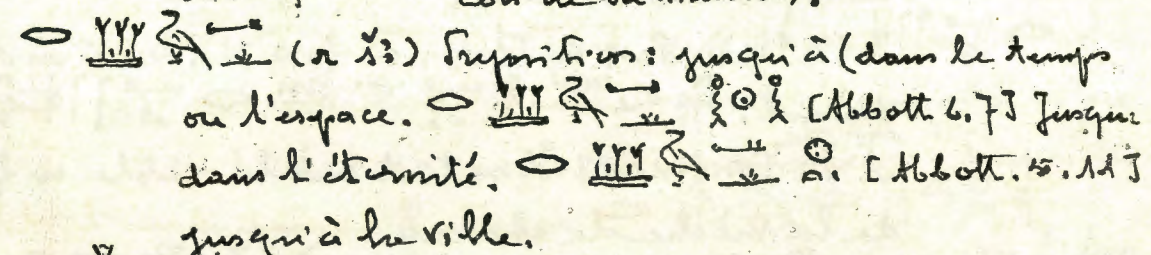 𓂋 𓆷 𓄿 (r š3) Préposition: jusqu'à (dans le temps
ou l'espace. 𓂋 𓆷 𓄿 𓎛𓇳𓎛 [Abbott 6.7] Jusque
dans l'éternité. 𓂋 𓆷 𓄿 𓊖 [Abbott. 5.11]
jusqu'à la ville.